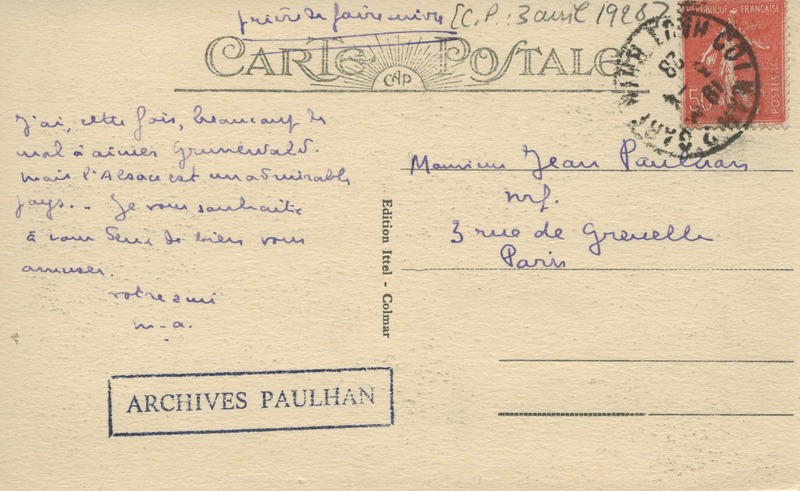 prière de faire suivre [C.P. : 3 avril 1928]
CARTE POSTALE
CAP
RÉPUBLIQUE FRANÇAISE
50
POSTES
COLMAR
HAUT RHIN
J'ai, cette fois, beaucoup de
mal à aimer Grunewald.
mais l'Alsace est un admirable
pays. - Je vous souhaite
à tous deux de bien vous
amuser.
votre ami
m-a.
Edition Ittel - Colmar
Monsieur Jean Paulhan
nrf.
3 rue de Grenelle
Paris
ARCHIVES PAULHAN